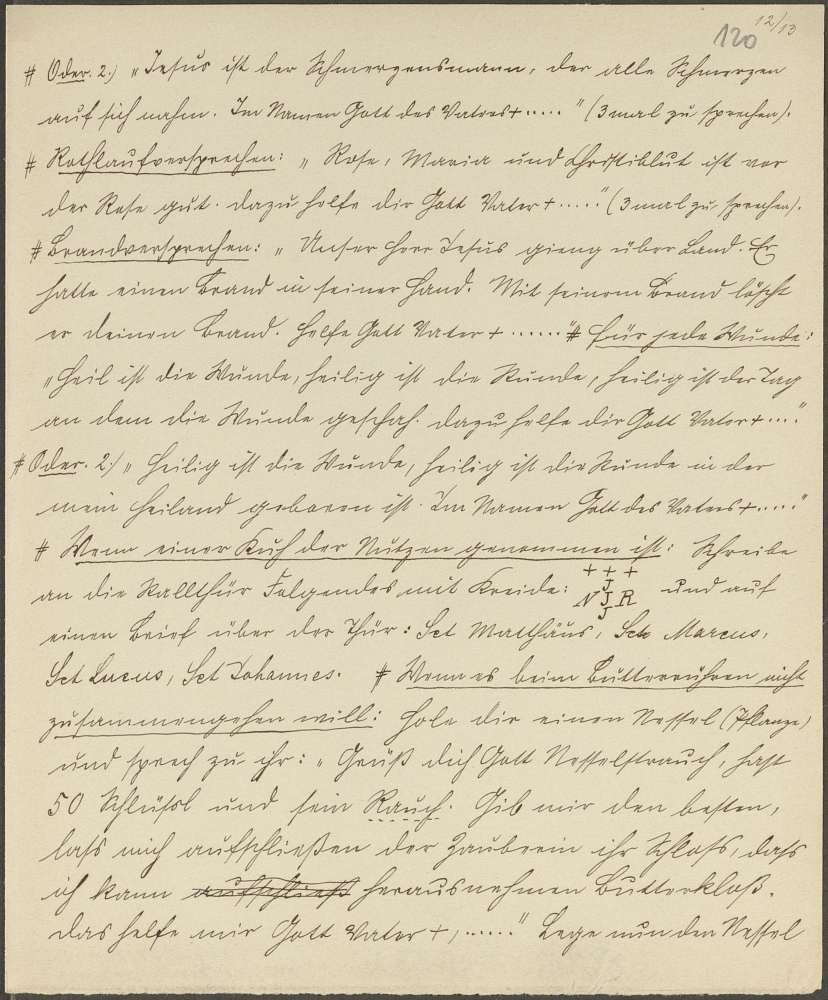 12/13
120
# Oder. 2.) „Jesus ist der Schmerzensmann, der alle Schmerzen
auf sich nahm. Im Namen Gott des Vaters + ....." (3 mal zu sprechen).
# Rothlaufversprechen: „Rose, Maria und Christiblut ist vor
der Rose gut. dazu helfe dir Gott Vater + ....." (3 mal zu sprechen).
# Brandversprechen: „Unser Herr Jesus gieng über Land. Er
hatte einen Brand in seiner Hand. Mit seinem Brand löscht
er deinen Brand. Helfe Gott Vater + ......" # für jede Wunde:
„Heil ist die Wunde, heilig ist die Stunde, heilig ist der Tag
an dem die Wunde geschah. dazu helfe dir Gott Vater + ...."
# Oder. 2.) „Heilig ist die Wunde, heilig ist die Stunde in der
mein Heiland geboren ist. Im Namen Gott des Vaters + ....."
# Wenn einer Kuh der Nutzen genommen ist: Schreibe
an die Stallthür Folgendes mit Kreide: + + + J N J R J und auf
einen Brief über der Thür: Sct Matthäus, Sct Marcus,
Sct Lucus, Sct Johannes. # Wenn es beim Butterrühren nicht
zusammengehen will: Hole dir einen Nessel (Pflanze)
und sprech zu ihr: „Grüß dich Gott Nesselstrauch, hast
50 Schlüssl und sein Rauch. Gib mir den besten,
lass mich aufschließen der Zauberin ihr Schloss, dass
ich kann aufschließ herausnehmen Butterkloß.
das helfe mir Gott Vater +, ......" Lege nun den Nessel